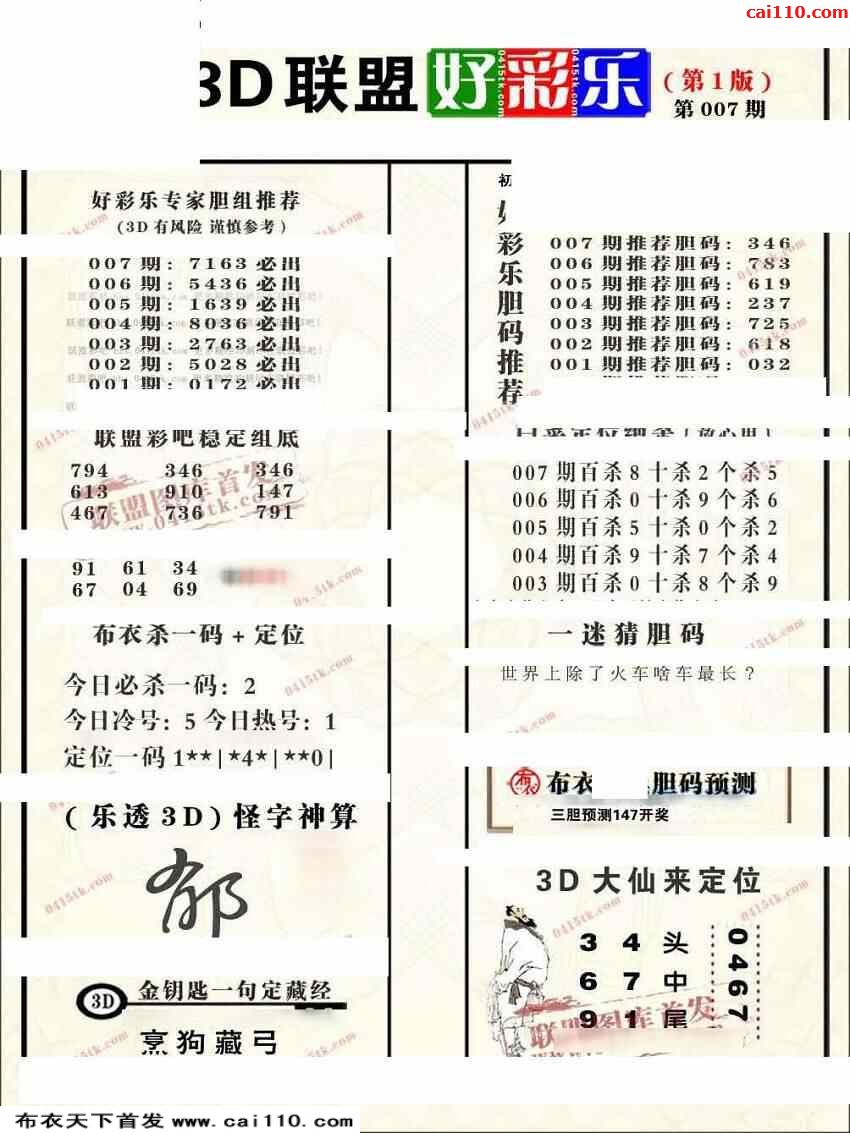 cai110.com
3D联盟好彩乐
(第1版)
第007期
好彩乐专家胆组推荐
(3D有风险 谨慎参考)
007期: 7163必出
006期: 5436必出
005期: 1639必出
004期: 8036必出
003期: 2763必出
002期: 5028必出
001期: 0172必出
联盟彩吧稳定组底
794 346 346
613 910 147
467 736 791
91 61 34
67 04 69
布衣杀一码+定位
今日必杀一码: 2
今日冷号: 5 今日热号: 1
定位一码1**|*4*|**0|
(乐透3D)怪字神算
郁
3D 金钥匙一句定藏经
烹狗藏弓
初
好彩乐胆码推荐
007期推荐胆码: 346
006期推荐胆码: 783
005期推荐胆码: 619
004期推荐胆码: 237
003期推荐胆码: 725
002期推荐胆码: 618
001期推荐胆码: 032
007期百杀8十杀2个杀5
006期百杀0十杀9个杀6
005期百杀5十杀0个杀2
004期百杀9十杀7个杀4
003期百杀0十杀8个杀9
一迷猜胆码
世界上除了火车啥车最长?
布衣 胆码预测
三胆预测147开奖
3D大仙来定位
3 4 头
6 7 中
9 1 尾
0467
联盟图库首发
布衣天下首发 www.cai110.com